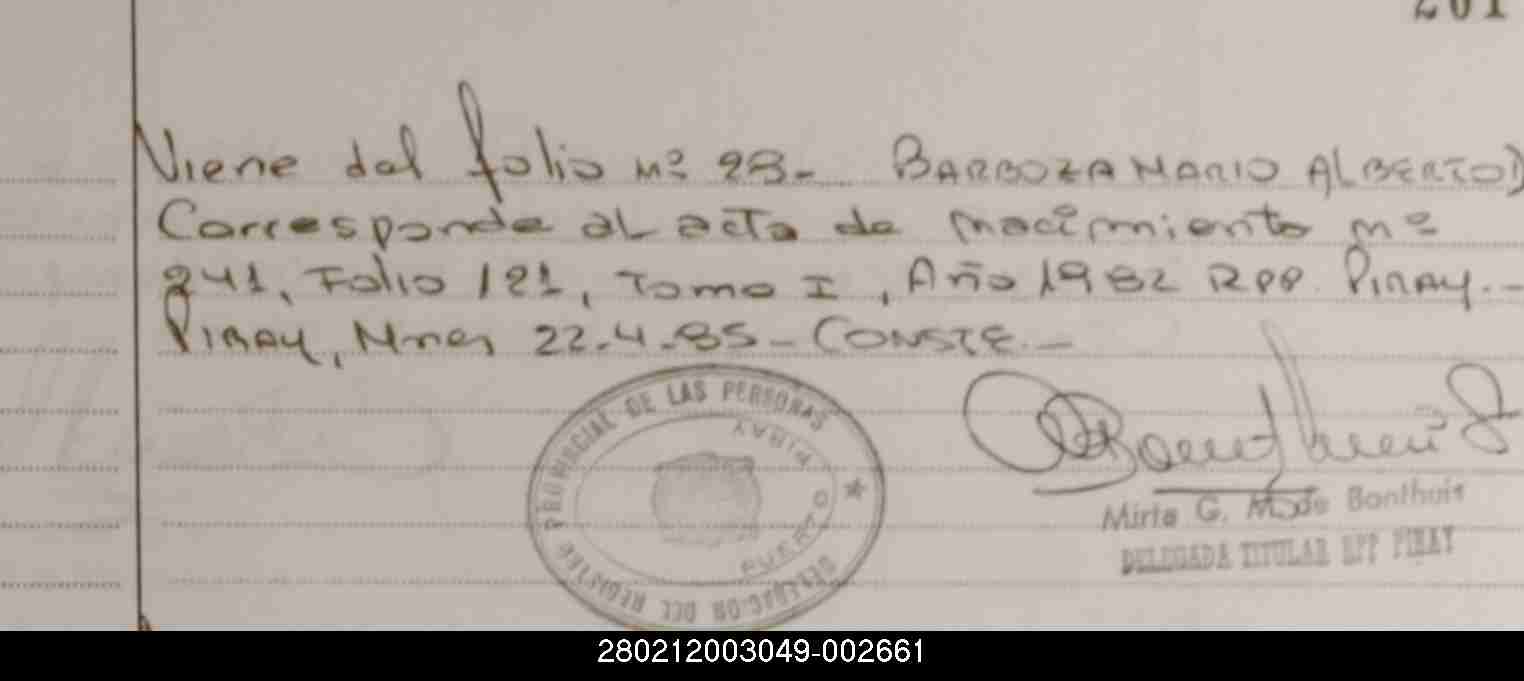 201
Viene del folio nº 98- BARBOZA MARIO ALBERTO)
Corresponde al acta de nacimiento nº
241, Folio 121, Tomo I, Año 1982 RPP. PIRAY.-
PIRAY, Mnes 22-4-85- CONSTE.-
DELEGACION DEL REGISTRO PROVINCIAL DE LAS PERSONAS
PUERTO PIRAY
Mirta G. M. de Bonthuis
DELEGADA TITULAR RPP PIRAY
280212003049-002661